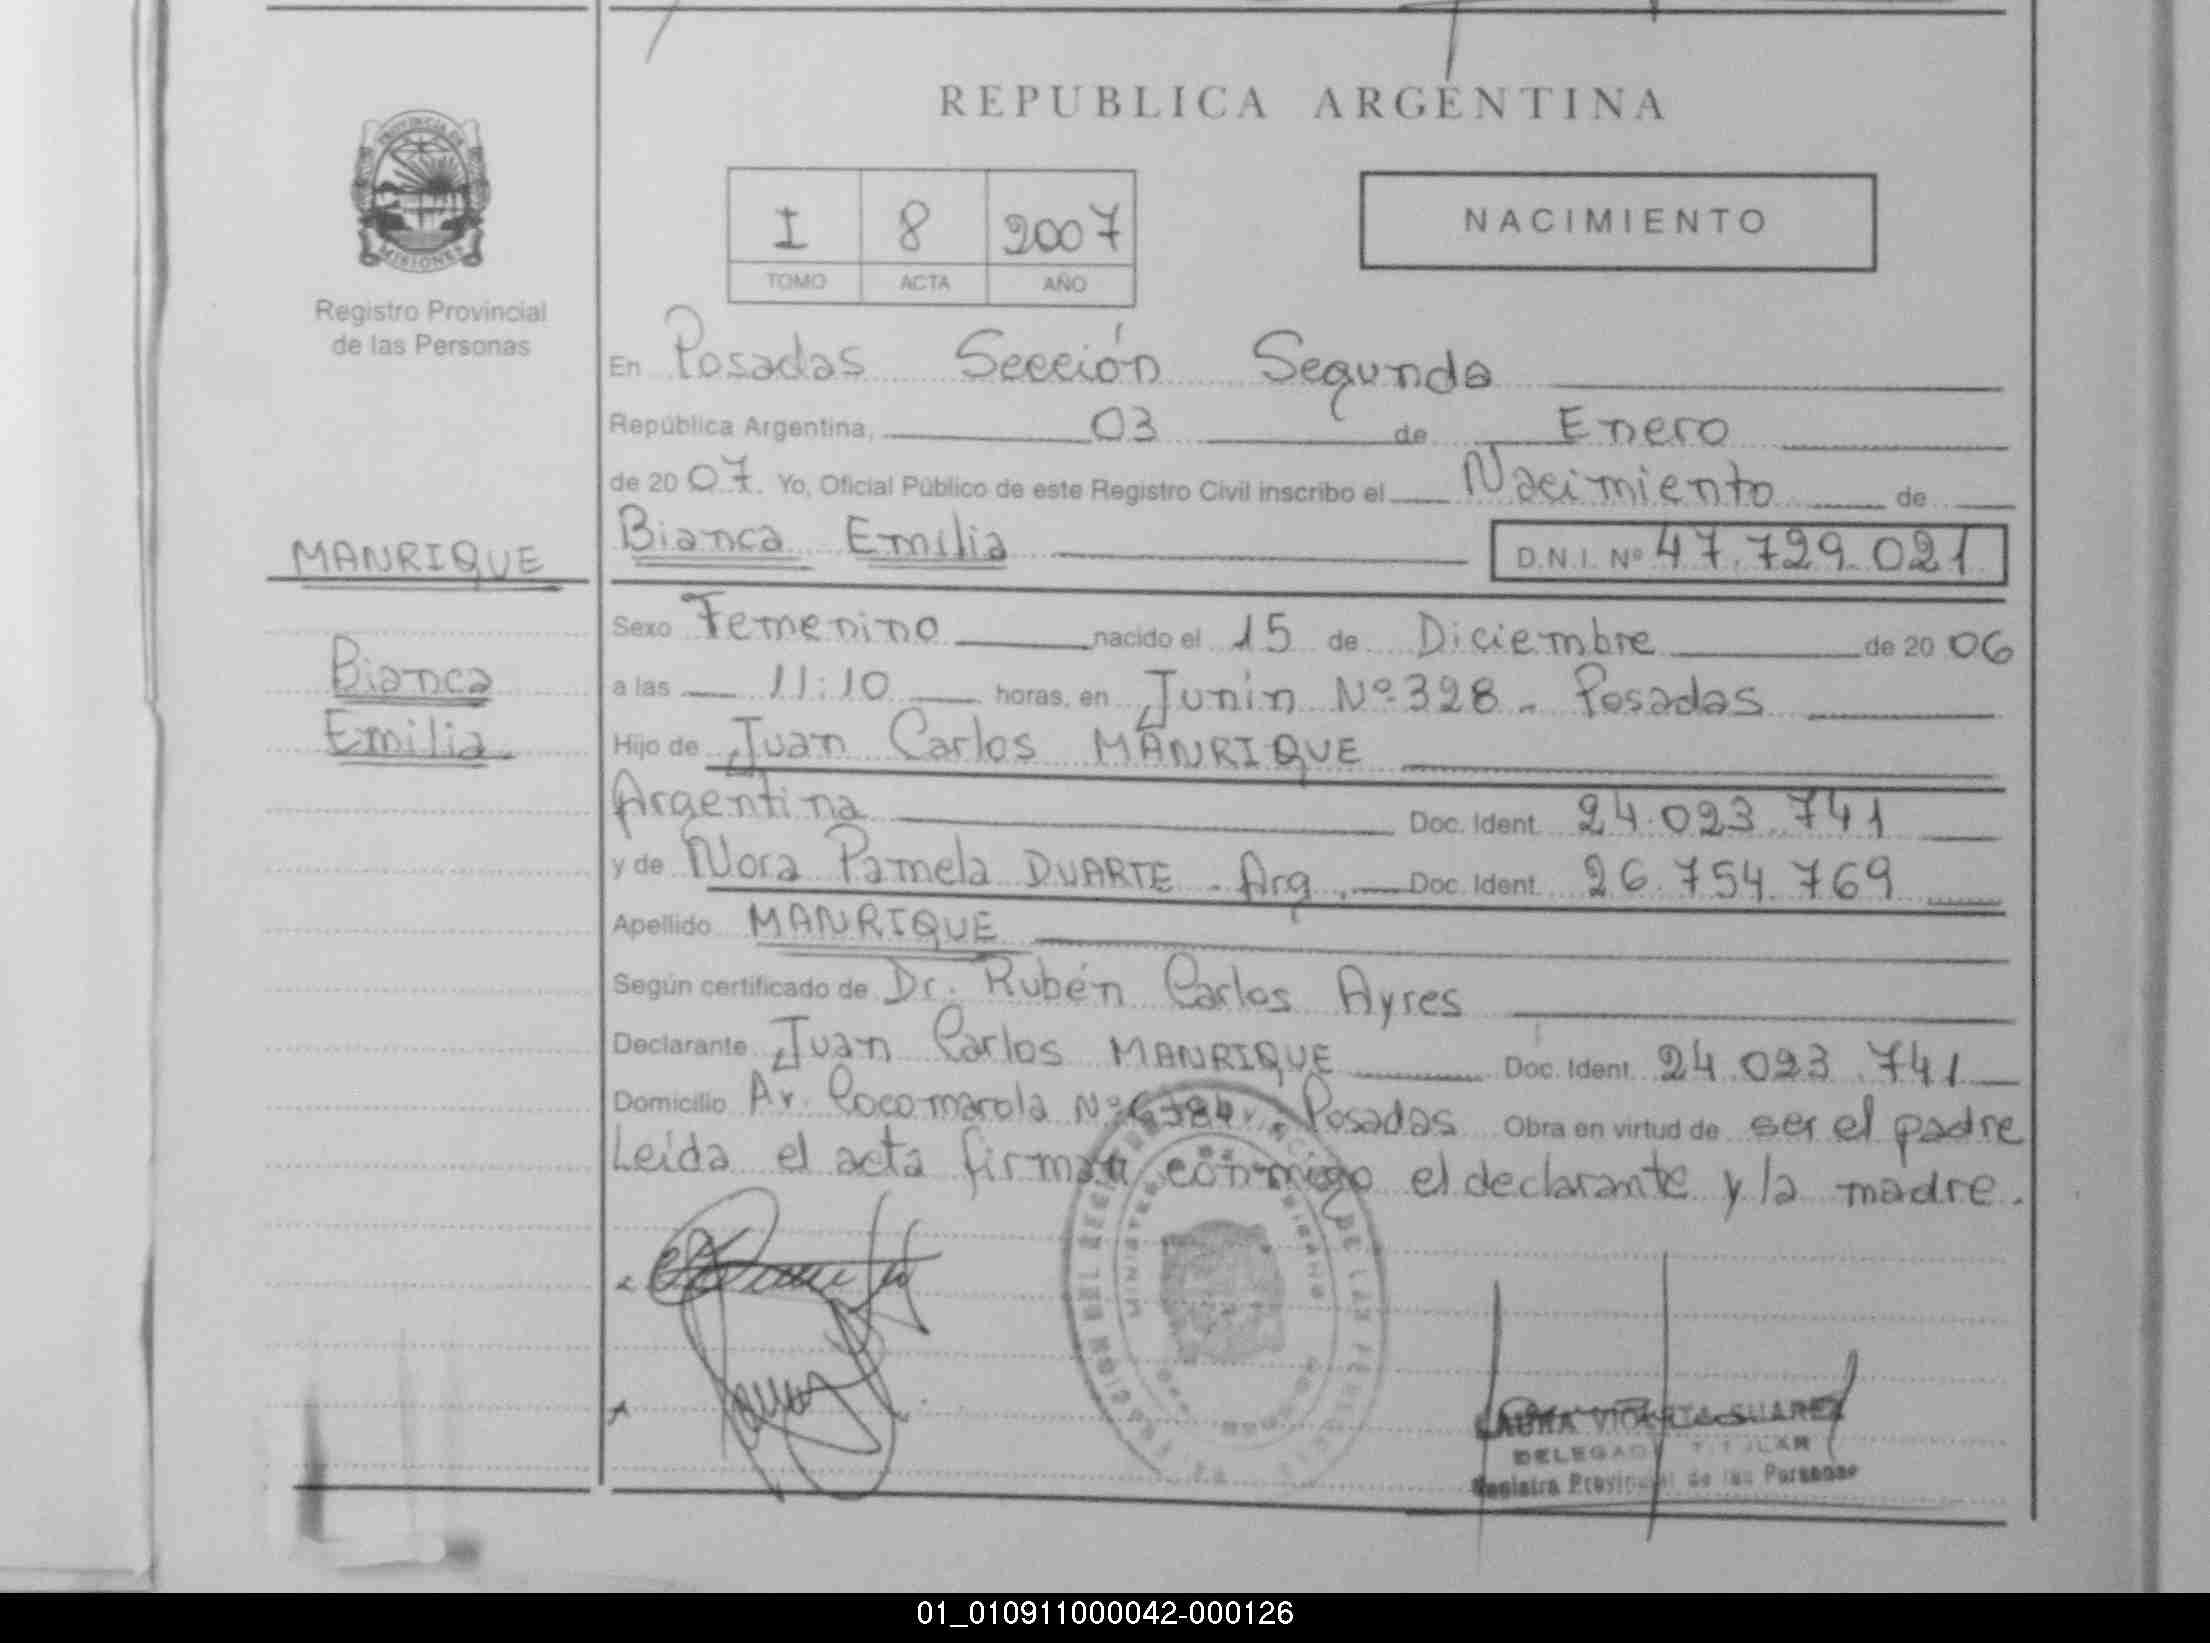 REPUBLICA ARGENTINA
PROVINCIA DE
MISIONES
Registro Provincial
de las Personas
I 8 2007
TOMO ACTA AÑO
NACIMIENTO
En Posadas Sección Segunda
República Argentina, 03 de Enero
de 2007. Yo, Oficial Público de este Registro Civil inscribo el Nacimiento de
MANRIQUE
Bianca Emilia D.N.I. Nº 47.729.021
Sexo Femenino nacido el 15 de Diciembre de 2006
Bianca
Emilia
a las 11:10 horas, en Junin Nº 328 - Posadas
Hijo de Juan Carlos MANRIQUE
Argentina Doc. Ident. 24.023.741
y de Nora Pamela DUARTE - Arg. Doc. Ident. 26.754.769
Apellido MANRIQUE
Según certificado de Dr. Rubén Carlos Ayres
Declarante Juan Carlos MANRIQUE Doc. Ident. 24.023.741
Domicilio Av. Cocomarola Nº Posadas Obra en virtud de ser el padre
Leída el acta firman conmigo el declarante y la madre.
DE LAS
MINISTERIO
LAURA SUAREZ
DELEGADO TITULAR
Registro Provincial de las Personas
01_010911000042-000126